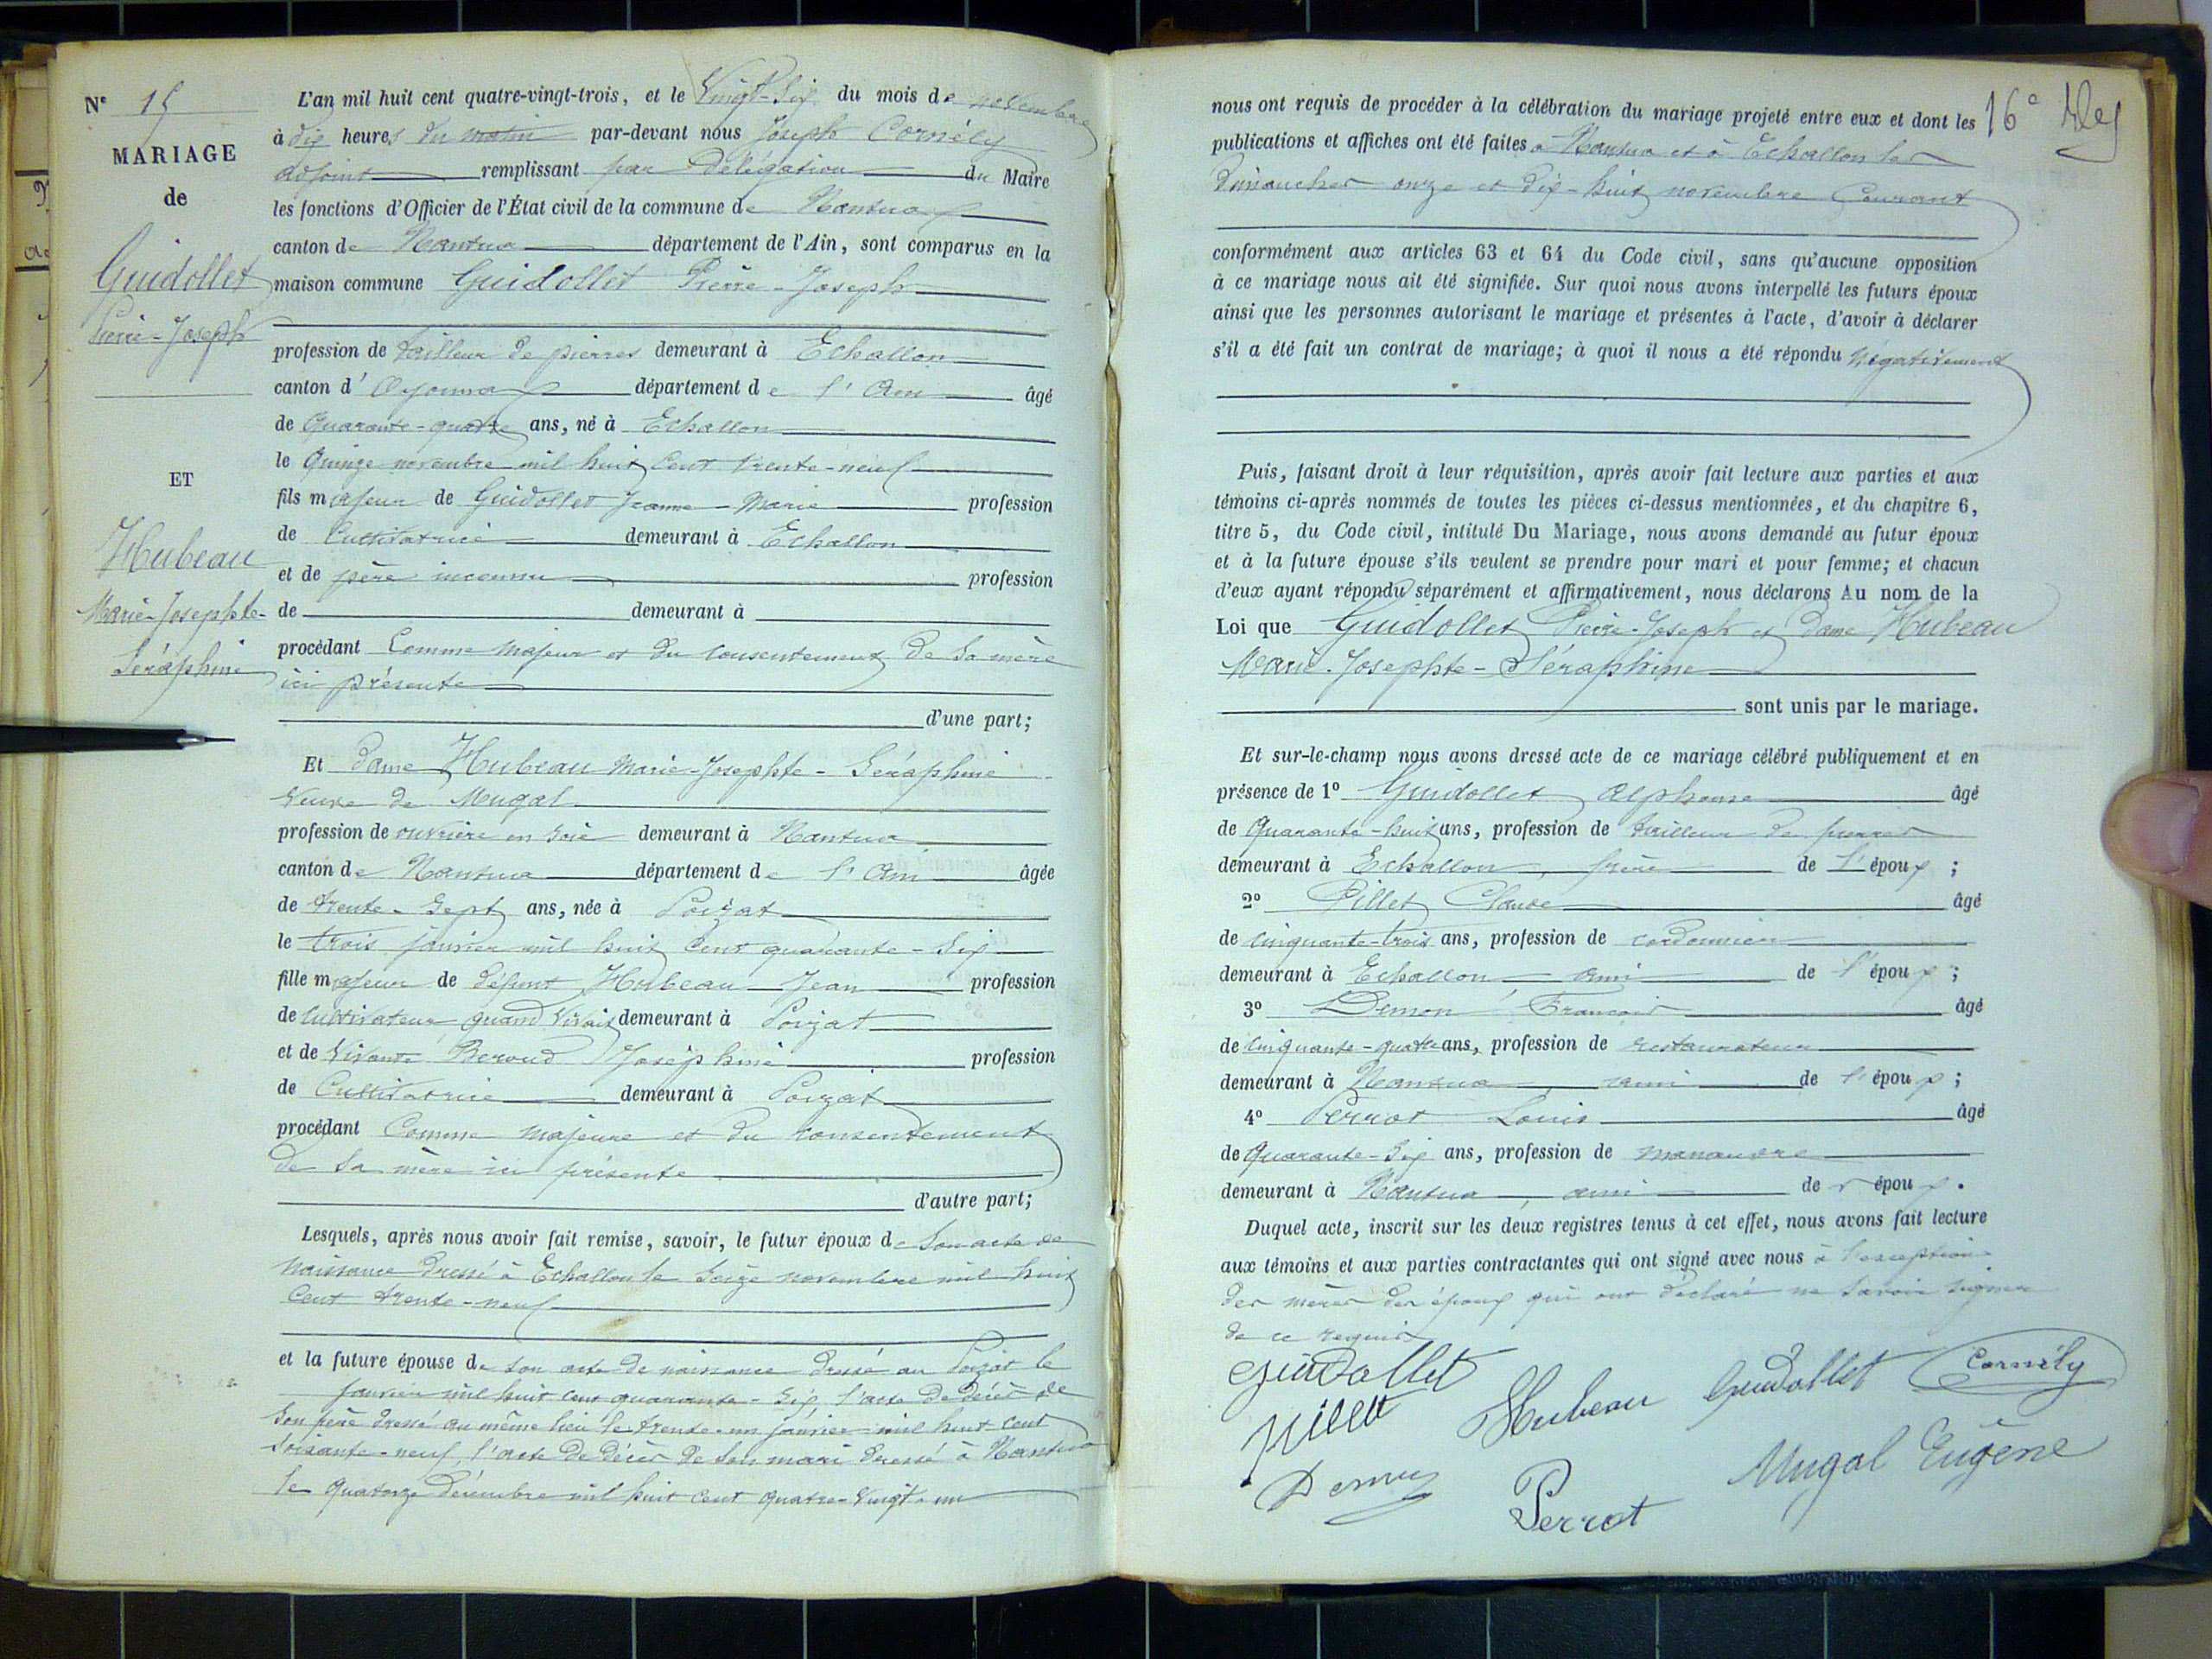 N° 15
MARIAGE
de
Guidollet
Pierre-Joseph
ET
Hubeau
Marie-Josephte-
Séraphine
L'an mil huit cent quatre-vingt-trois, et le Vingt-Six du mois de novembre
à dix heures du matin par-devant nous Joseph Cornély
adjoint remplissant par délégation du Maire
les fonctions d'Officier de l'État civil de la commune de Nantua
canton de Nantua département de l'Ain, sont comparus en la
maison commune Guidollet Pierre-Joseph
profession de tailleur de pierres demeurant à Echallon
canton d'Oyonnax département de l'Ain âgé
de Quarante-quatre ans, né à Echallon
le Quinze novembre mil huit cent trente-neuf
fils majeur de Guidollet Jeanne-Marie profession
de Cultivatrice demeurant à Echallon
et de père inconnu profession
de demeurant à
procédant Comme majeur et du consentement de sa mère
ici présente
d'une part;
Et Dame Hubeau Marie-Josephte-Séraphine
Veuve de Mugal
profession de ouvrière en soie demeurant à Nantua
canton de Nantua département de l'Ain âgée
de trente-sept ans, née à Poizat
le trois janvier mil huit cent quarante-six
fille majeur de défunt Hubeau Jean profession
de Cultivateur quand vivait demeurant à Poizat
et de vivante Beroud Joséphine profession
de Cultivatrice demeurant à Poizat
procédant Comme majeure et du consentement
de sa mère ici présente
d'autre part;
Lesquels, après nous avoir fait remise, savoir, le futur époux de son acte de
naissance dressé à Echallon le seize novembre mil huit
cent trente-neuf
et la future épouse de son acte de naissance dressé au Poizat le
janvier mil huit cent quarante-six, l'acte de décès de
son père dressé au même lieu le trente-un janvier mil huit cent
soixante-neuf, l'acte de décès de son mari dressé à Nantua
le quatorze décembre mil huit cent quatre-vingt-un
16e
nous ont requis de procéder à la célébration du mariage projeté entre eux et dont les
publications et affiches ont été faites à Nantua et à Echallon les
dimanches onze et dix-huit novembre courant
conformément aux articles 63 et 64 du Code civil, sans qu'aucune opposition
à ce mariage nous ait été signifiée. Sur quoi nous avons interpellé les futurs époux
ainsi que les personnes autorisant le mariage et présentes à l'acte, d'avoir à déclarer
s'il a été fait un contrat de mariage; à quoi il nous a été répondu négativement
Puis, faisant droit à leur réquisition, après avoir fait lecture aux parties et aux
témoins ci-après nommés de toutes les pièces ci-dessus mentionnées, et du chapitre 6,
titre 5, du Code civil, intitulé Du Mariage, nous avons demandé au futur époux
et à la future épouse s'ils veulent se prendre pour mari et pour femme; et chacun
d'eux ayant répondu séparément et affirmativement, nous déclarons Au nom de la
Loi que Guidollet Pierre-Joseph et Dame Hubeau
Marie-Josephte-Séraphine
sont unis par le mariage.
Et sur-le-champ nous avons dressé acte de ce mariage célébré publiquement et en
présence de 1° Guidollet Alphonse âgé
de Quarante-huit ans, profession de tailleur de pierres
demeurant à Echallon, frère de l'époux ;
2° Pillet Claude âgé
de cinquante-trois ans, profession de cordonnier
demeurant à Echallon ami de l'époux ;
3° François âgé
de cinquante-quatre ans, profession de restaurateur
demeurant à Nantua, ami de l'époux ;
4° Perrot Louis âgé
de Quarante-six ans, profession de manœuvre
demeurant à Nantua, ami de l'époux.
Duquel acte, inscrit sur les deux registres tenus à cet effet, nous avons fait lecture
aux témoins et aux parties contractantes qui ont signé avec nous à l'exception
des mères des époux qui ont déclaré ne savoir signer
de ce requis
Guidollet
Pillet
Hubeau Guidollet Cornély
Perrot
Mugal Eugène